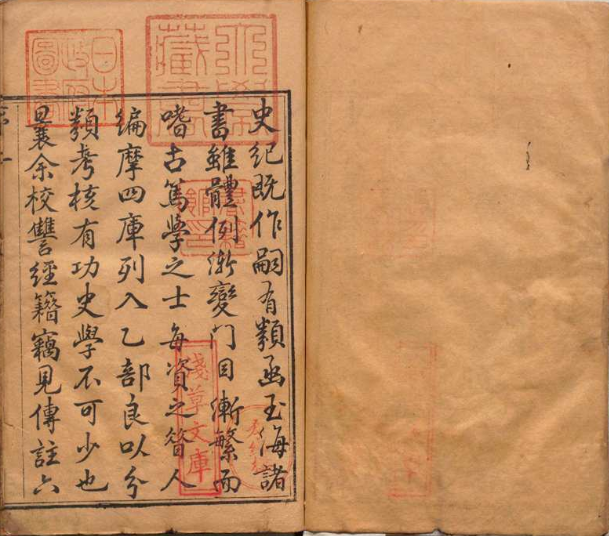 史紀既作嗣有類函玉海諸
書雖體例漸變門目漸繁而
嗜古篤學之士每資之昔人
編摩四庫列入乙部良以分
類考核有功史學不可少也
曩余校讐經籍竊見傳註六
藏書
日本政府圖書
書籍館印
淺草文庫